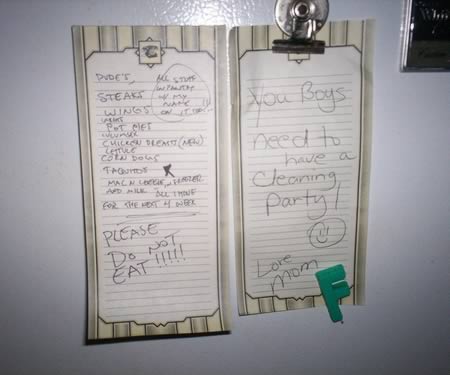 DUDE'S,
STEAKS
WINGS
POT PIES
CUCUMBER
CHICKEN BREASTS (NEW)
LETTUCE
CORN DOGS
TAQUITOS
MAC N CHEESE, IN FREEZER
AND MILK ALL MINE
FOR THE NEXT 1 WEEK
ALL STUFF
IN PANTRY
W/ MY
NAME
ON IT
PLEASE
DO NOT
EAT!!!!!
You Boys
need to
have a
cleaning
party!
Love
Mom
F